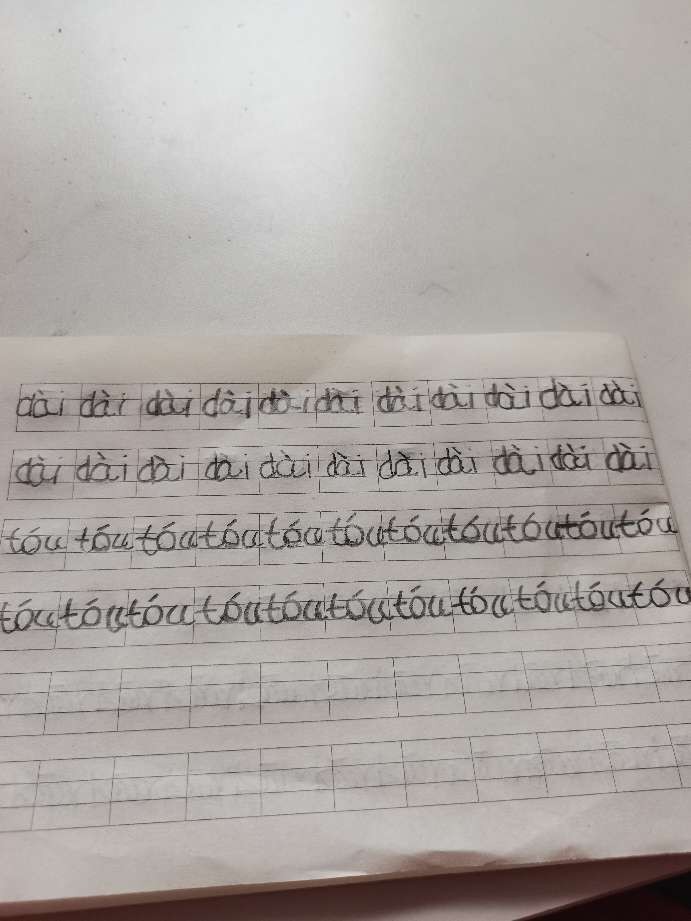 dài dài dài dài dài dài dài dài dài dài dài
dài dài dài dài dài dài dài dài dài dài dài
tóu tóu tóu tóu tóu tóu tóu tóu tóu tóu tóu
tóu tóu tóu tóu tóu tóu tóu tóu tóu tóu tóu